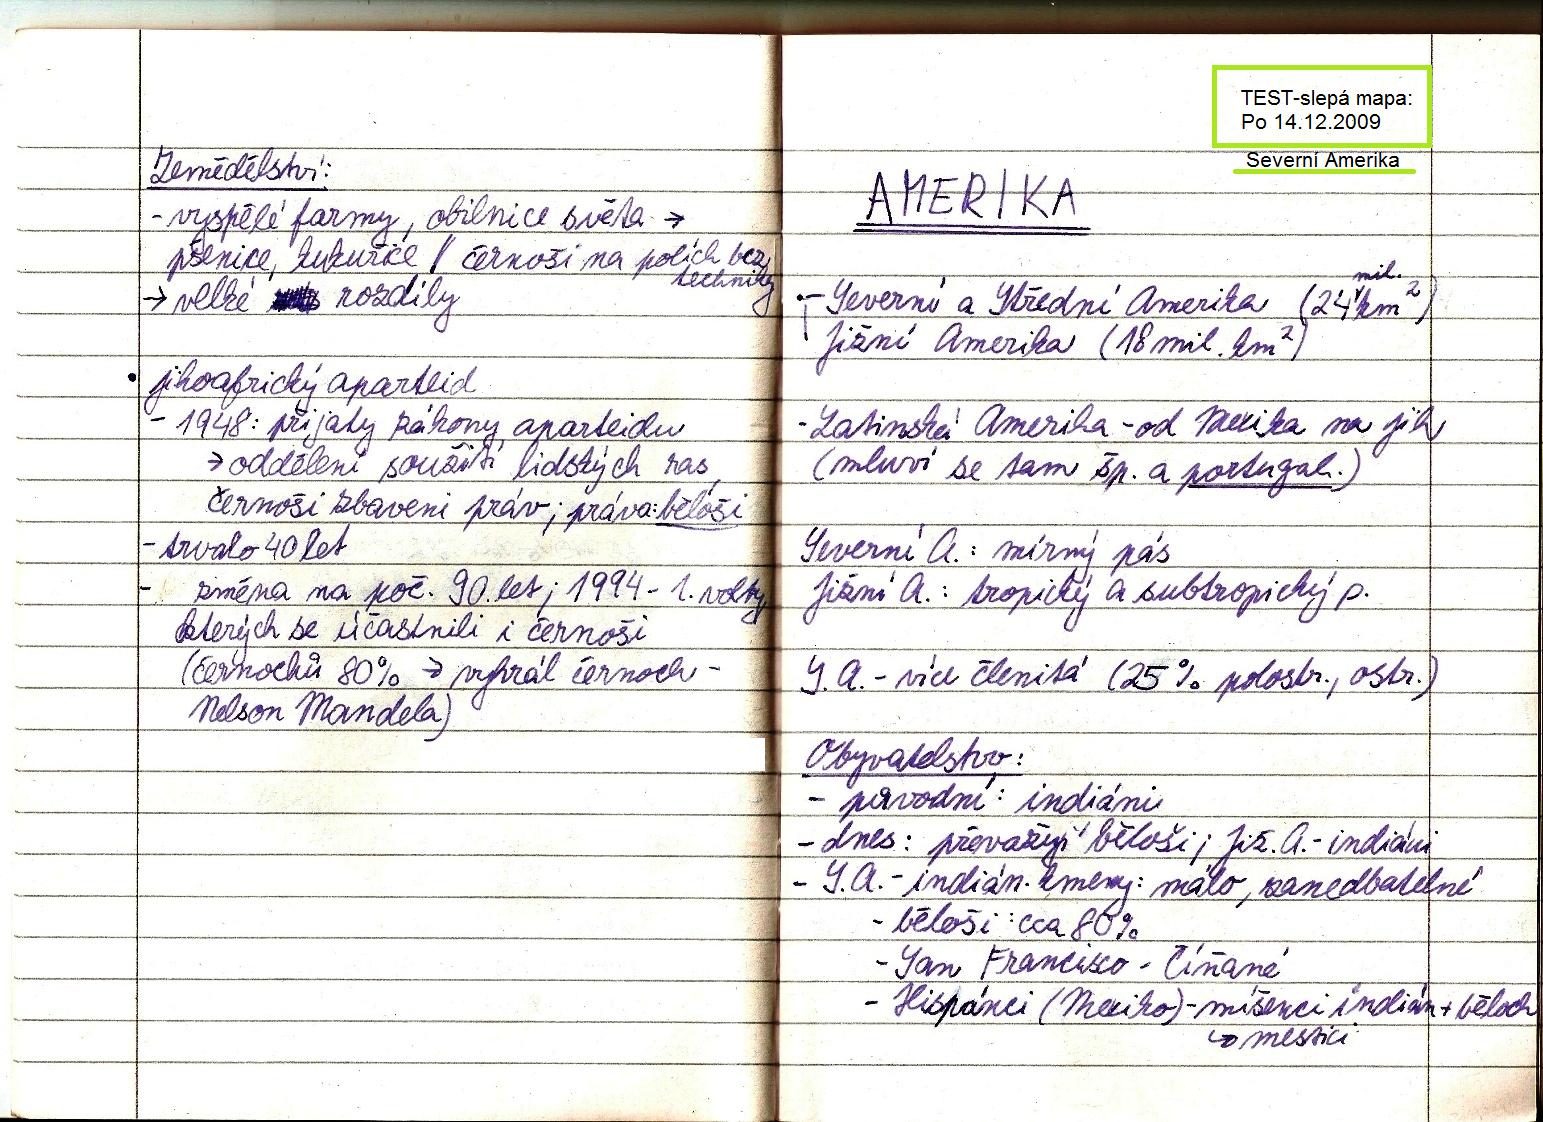 Zemědělství:
- vyspělé farmy, obilnice světa →
pšenice, kukuřice // černoši na polích bez
techniky
→ velké rozdíly
• jihoafrický aparteid
- 1948: přijaty zákony aparteidu
→ oddělení soužití lidských ras,
černoši zbaveni práv; práva: běloši
- trvalo 40 let
- změna na poč. 90. let; 1994 - 1. volby
kterých se účastnili i černoši
(černochů 80% → vyhrál černoch -
Nelson Mandela)
TEST-slepá mapa:
Po 14.12.2009
Severní Amerika
AMERIKA
- Severní a Střední Amerika (24 mil. km²)
Jižní Amerika (18 mil. km²)
- Latinská Amerika - od Mexika na jih
(mluví se tam šp. a portugal.)
Severní A.: mírný pás
Jižní A.: tropický a subtropický p.
S.A. - více členitá (25% polostr., ostr.)
Obyvatelstvo:
- původní: indiáni
- dnes: převažují běloši; Již. A. - indiáni
- S.A. - indián. kmeny: málo, zanedbatelné
- běloši: cca 80%
- San Francisco - Číňané
- Hispánci (Mexiko) - míšenci indián + běloch
↪ mestici